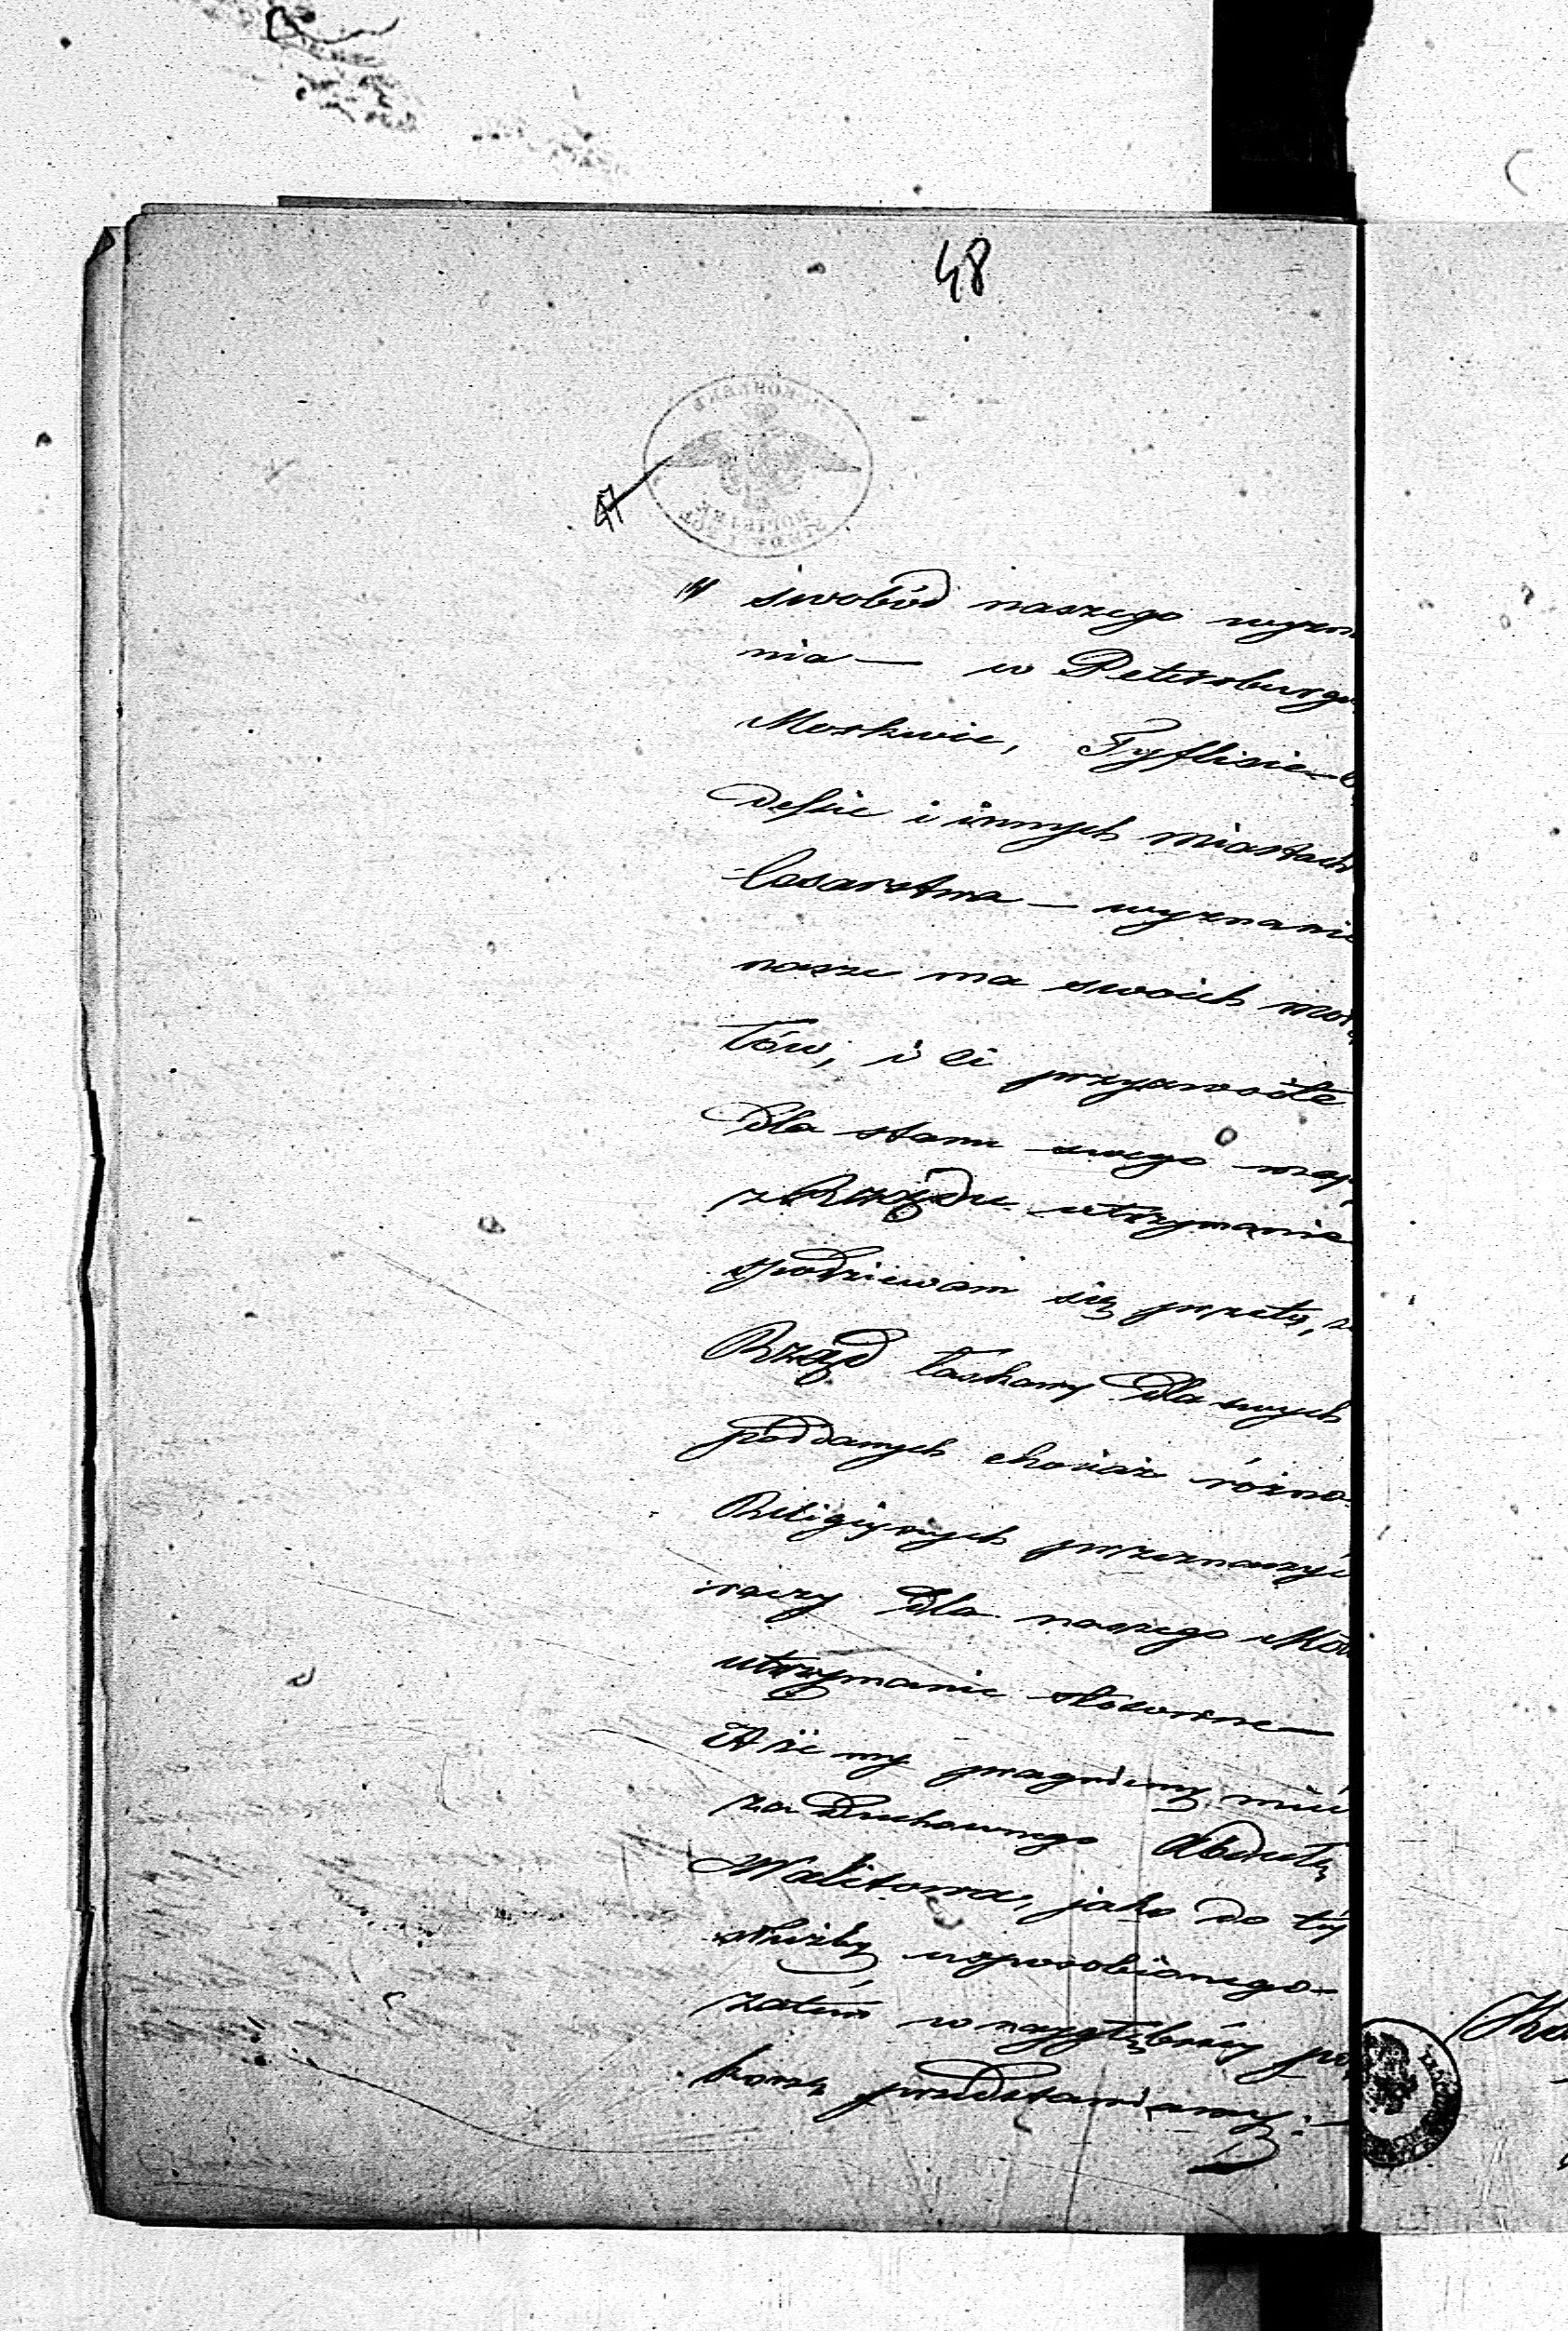 48
47
swobód naszego wyzn
nia — w Petersburgu
Moskwie, Tyflisie — O
dessie i innych miastach
Cesarstwa — wyznanie
nasze ma swoich
łów, i ci przyzwoite
dla stanu swego mają
z Rządu utrzymanie
spodziewam się przeto, że
Rząd łaskawy dla swych
poddanych chociaż różno
Religijnych przeznaczyć
raczy dla naszego Moł
utrzymanie stosowne —
A że my pragniemy mieć
za Duchownego Abdułę
Walitowa, jako do téj
służby usposobionego —
zatém w najgłębszéj po
korze przedstawiamy. —